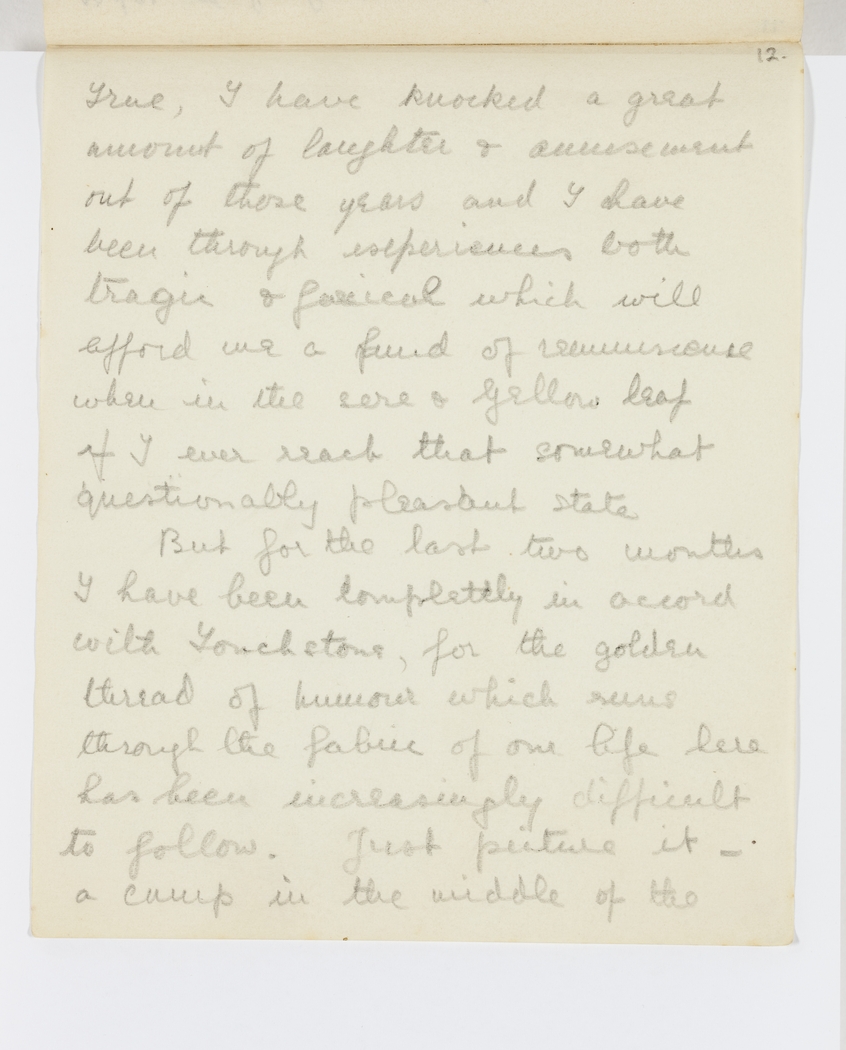 12.
True, I have knocked a great
amount of laughter & amusement
out of those years and I have
been through experiences both
tragic & farcical which will
afford me a fund of reminiscence
when in the sere & yellow leaf
if I ever reach that somewhat
questionably pleasant state
But for the last two months
I have been completely in accord
with Touchstone, for the golden
thread of humour which runs
through the fabric of our life here
has been increasingly difficult
to follow. Just picture it –
a camp in the middle of the